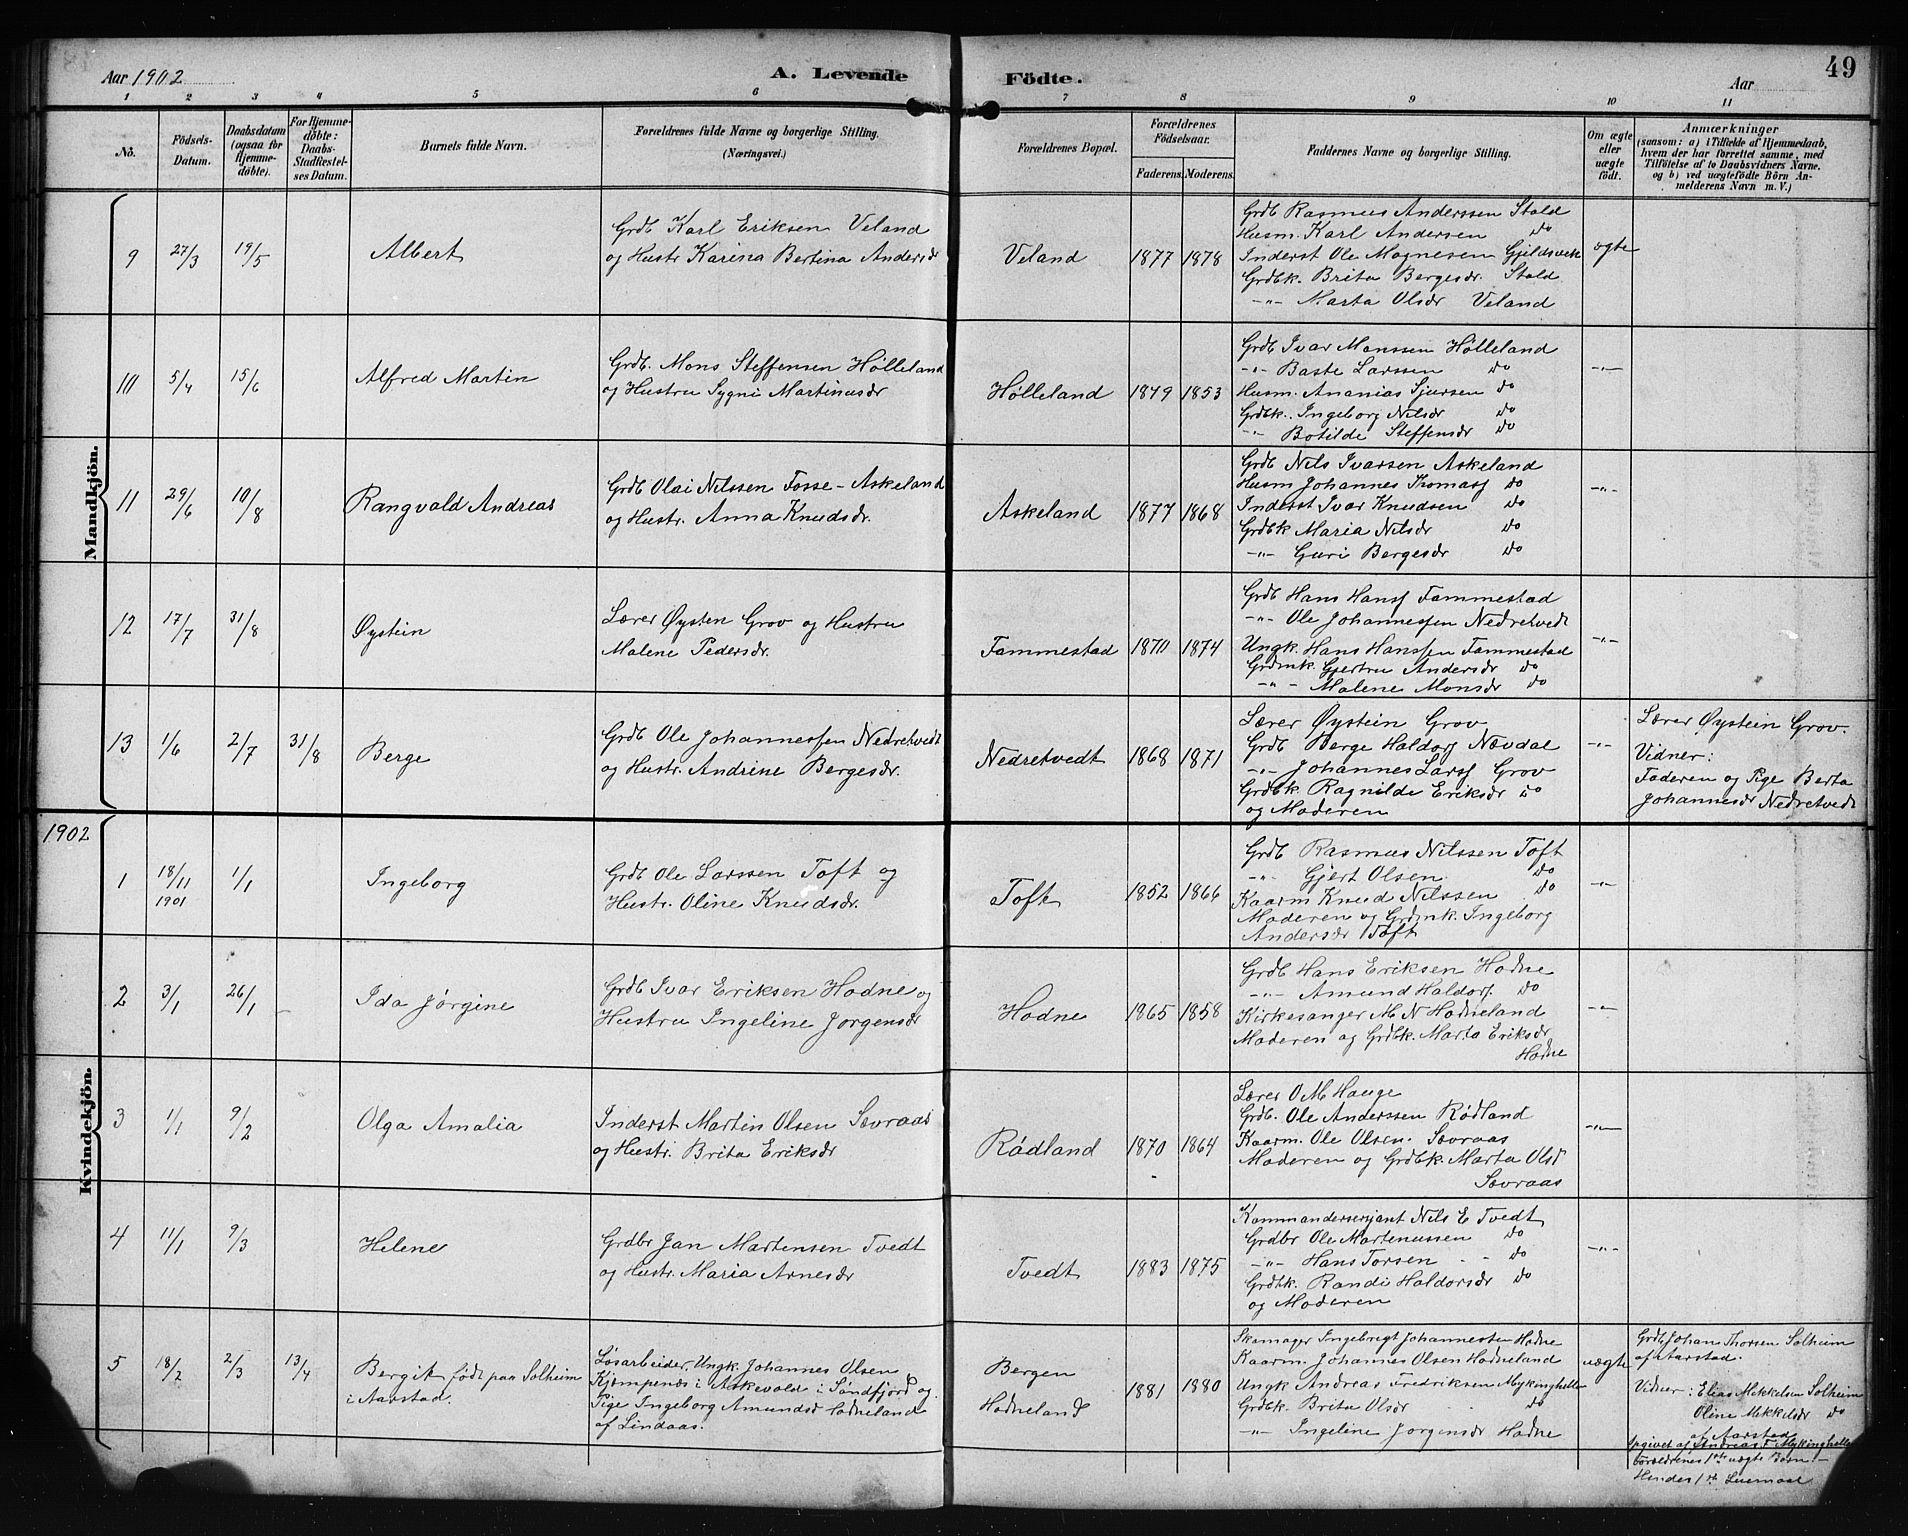 Aar 1902
A. Levende Födte.
Aar
49
1 2 3 4 5 6 7 8 9 10 11
No.
Födsels-Datum.
Daabsdatum (ogsaa for Hjemme-döbte).
For Hjemme-döbte: Daabs-Stadfæstel-ses Datum.
Barnets fulde Navn.
Forældrenes fulde Navne og borgerlige Stilling. (Næringsvei.)
Forældrenes Bopæl.
Forældrenes Födselsaar.
Faderens. Moderens.
Faddernes Navne og borgerlige Stilling.
Om ægte eller uægte födt.
Anmærkninger
(saasom: a) i Tilfælde af Hjemmedaab, hvem der har forrettet samme, med Tilföielse af to Daabsvidners Navne. og b) ved uægtefödte Börn An-melderens Navn m. V.)
Mandkjön.
9 27/3 19/5 Albert
Grdb Karl Eriksen Veland
og Hustr Karina Bertina Andersdr
Veland 1877 1878
Grdb Rasmus Anderssen Stald
Husm. Karl Andersen do
Inderst Ole Magnesen Gjeldsvik
Grdbk. Brita Bergesdr. Stald
-"- Marta Olsdr Veland
ægte
10 5/4 15/6 Alfred Martin
Grdb. Mons Steffensen Hølleland
og Hustru Sygni Martinusdr
Hølleland 1849 1853
Grdb Ivar Monssen Hølleland
-"- Baste Larssen do
Husm. Ananias Sjursen do
Grdbk. Ingeborg Nilsdr do
-"- Botilde Steffensdr do
-"-
11 29/6 10/8 Rangvald Andreas
Grdb Olai Nilssen Fosse-Askeland
og Hustr. Anna Knudsdr.
Askeland 1877 1868
Grdb Nils Ivarsen Askeland
Husm Johannes Thomass do
Inderst Ivar Knudsen do
Grdbk Maria Nilsdr do
-"- Guri Bergesdr do
-"-
12 17/7 31/8 Øystein
Lærer Øysten Grov og Hustru
Malene Pedersdr.
Fammestad 1870 1874
Grdb Hans Hanss Fammestad
-"- Ole Johannessen Nedretvedt
Ungk. Hans Hanssen Fammestad
Grdmk. Gjertru Andersdr do
-"- Malene Monsdr do
-"-
13 1/6 2/7 31/8 Berge
Grdb Ole Johannessen Nedretvedt
og Hustr. Andrine Bergesdr.
Nedretvedt 1868 1871
Lærer Øystein Grov
Grdb Berge Haldors Nævdal
-"- Johannes Larss Grov
Grdbk Ragnilde Eriksdr do
og Moderen
-"-
Lærer Øystein Grov.
Vidner:
Faderen og Pige Berta
Johannesdr Nedretvedt
1902
Kvindekjön.
1 18/11 1901 1/1 Ingeborg
Grdb Ole Larssen Toft og
Hustr. Oline Knudsdr.
Toft 1852 1866
Grdb Rasmus Nilssen Toft
-"- Gjert Olsen do
Kaarm Knud Nilssen do
Moderen og Grdmk. Ingeborg
Andersdr Toft
-"-
2 3/1 26/1 Ida Jørgine
Grdb Ivar Eriksen Hodne og
Hustru Ingeline Jorgensdr
Hodne 1865 1858
Grdb Hans Eriksen Hodne
-"- Amund Haldors. do
Kirkesanger M N Hodneland
Moderen og Grdbk. Marta Eriksdr
Hodne
-"-
3 1/1 9/2 Olga Amalia
Inderst Martin Olsen Sævraas
og Hustr. Brita Eriksdr
Rødland 1870 1864
Lærer O M Hauge
Grdb. Ole Anderssen Rødland
Kaarm. Ole Olsen. Sævraas
Moderen og Grdbk. Marta Olsd
Sævraas
-"-
4 11/1 9/3 Helene
Grdbr Jan Martensen Tvedt
og Hustr. Maria Arnesdr
Tvedt 1883 1875
Kommandersersjant Nils E Tvedt
Grdbr Ole Martenussen do
-"- Hans Torsen do
Grdbk. Randi Haldorsdr do
og Moderen
-"-
5 18/2 2/3 13/4 Bergit født paa Solheim
i Aarstad.
Løsarbeider, Ungk. Johannes Olsen
Kjempenes i Askevold i Søndfjord og
Pige Ingeborg Amundsd Hodneland
af Lindaas.
Bergen
Hodneland
1881 1880
Skomager Ingebregt Johannesten Hodne
Kaarm. Johannes Olsen Hodneland
Ungk Andreas Fredriksen Mykinghelle
Grdbk. Brita Olsdr do
-"- Ingeline Jorgensdr Hodne
uægte
Grdb Johan Thorsen Solheim
af Aarstad.
Vidner: Elias Mikkelsen Solheim
Oline Mikkelsdr do
af Aarstad
Opgivet af Andreas F. Mykinghelle
Forældrenes 1ste uægte Barn
Hendes 1ste Leiermaal